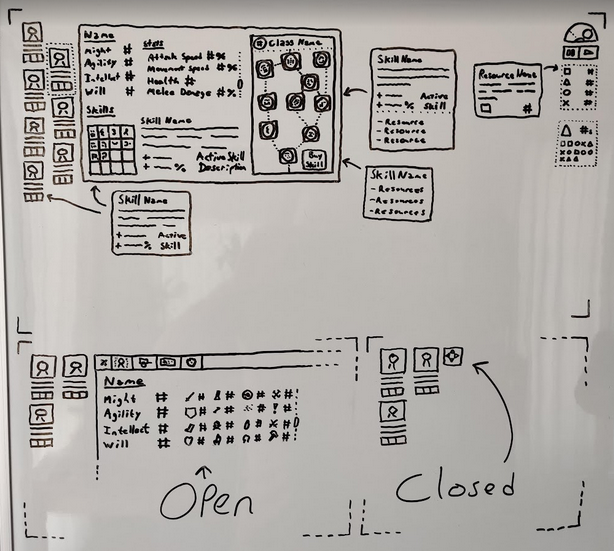 Name
Might #
Agility #
Intellect #
Will #
Stats
Attack Speed #%
Movement Speed #%
Health #
Melee Damage #%
Skills
Skill Name
+ Active Skill
+ % Description
# Class Name
Buy
Skill
Skill Name
+ Active
+ % Skill
- Resource
- Resource
- Resource
Skill Name
- Resources
- Resources
- Resources
Resource Name
#
#
#
#
x #
Skill Name
+ Active
+ % Skill
x
Name
Might # # # # #
Agility # # # # ! #
Intellect # # # # #
Will # # # # #
Open
Closed